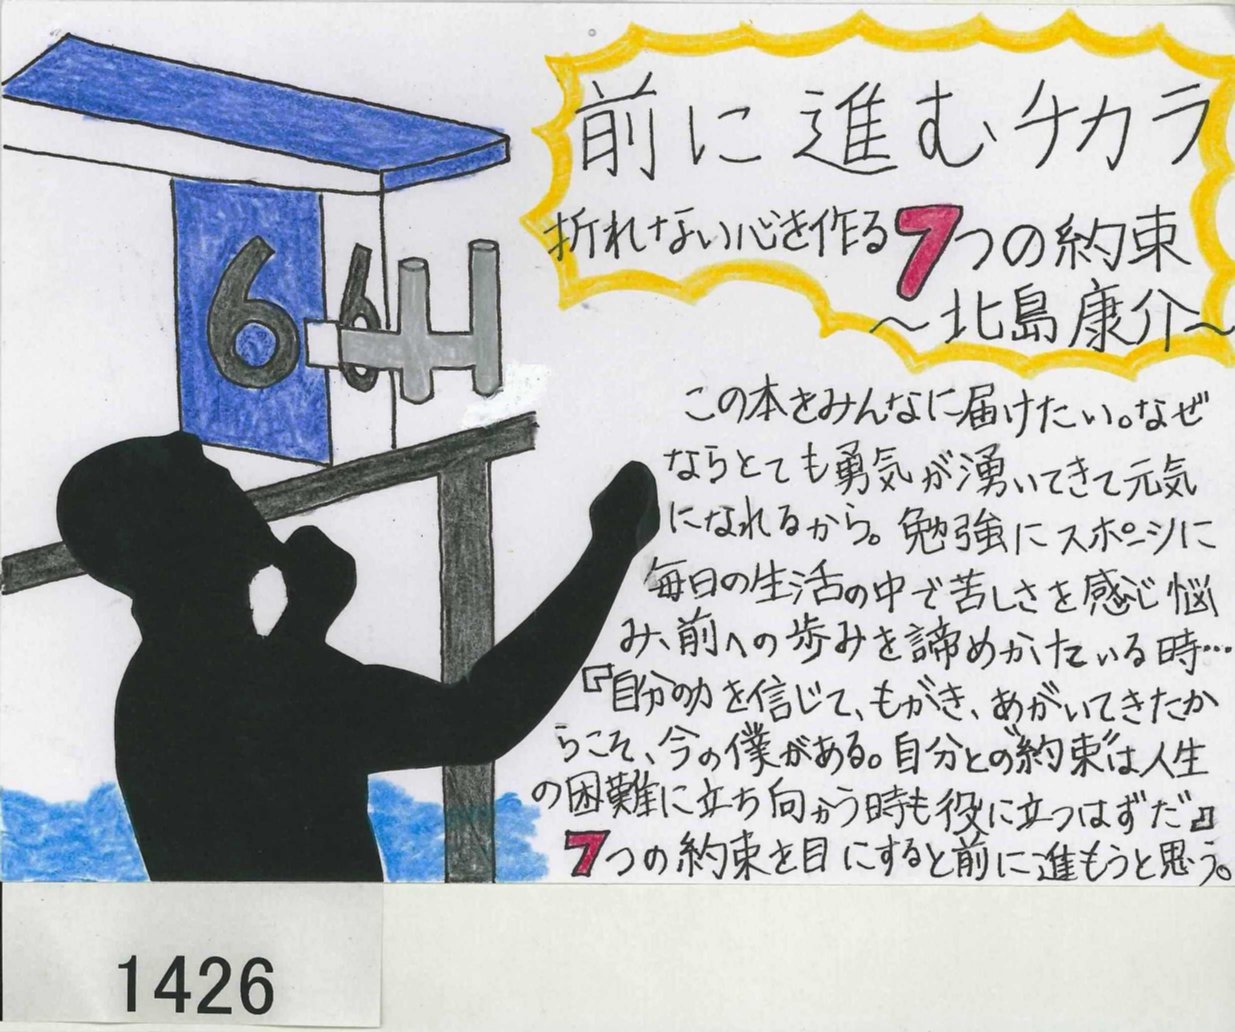 前に進むチカラ
折れない心を作る7つの約束
～北島康介～
この本をみんなに届けたい。なぜ
ならとても勇気が湧いてきて元気
になれるから。勉強にスポーツに
毎日の生活の中で苦しさを感じ悩
み、前への歩みを諦めかけている時…
『自分の力を信じて、もがき、あがいてきたか
らこそ、今の僕がある。自分との"約束"は人生
の困難に立ち向かう時も役に立つはずだ』
7つの約束を目にすると前に進もうと思う。
6
6
1426